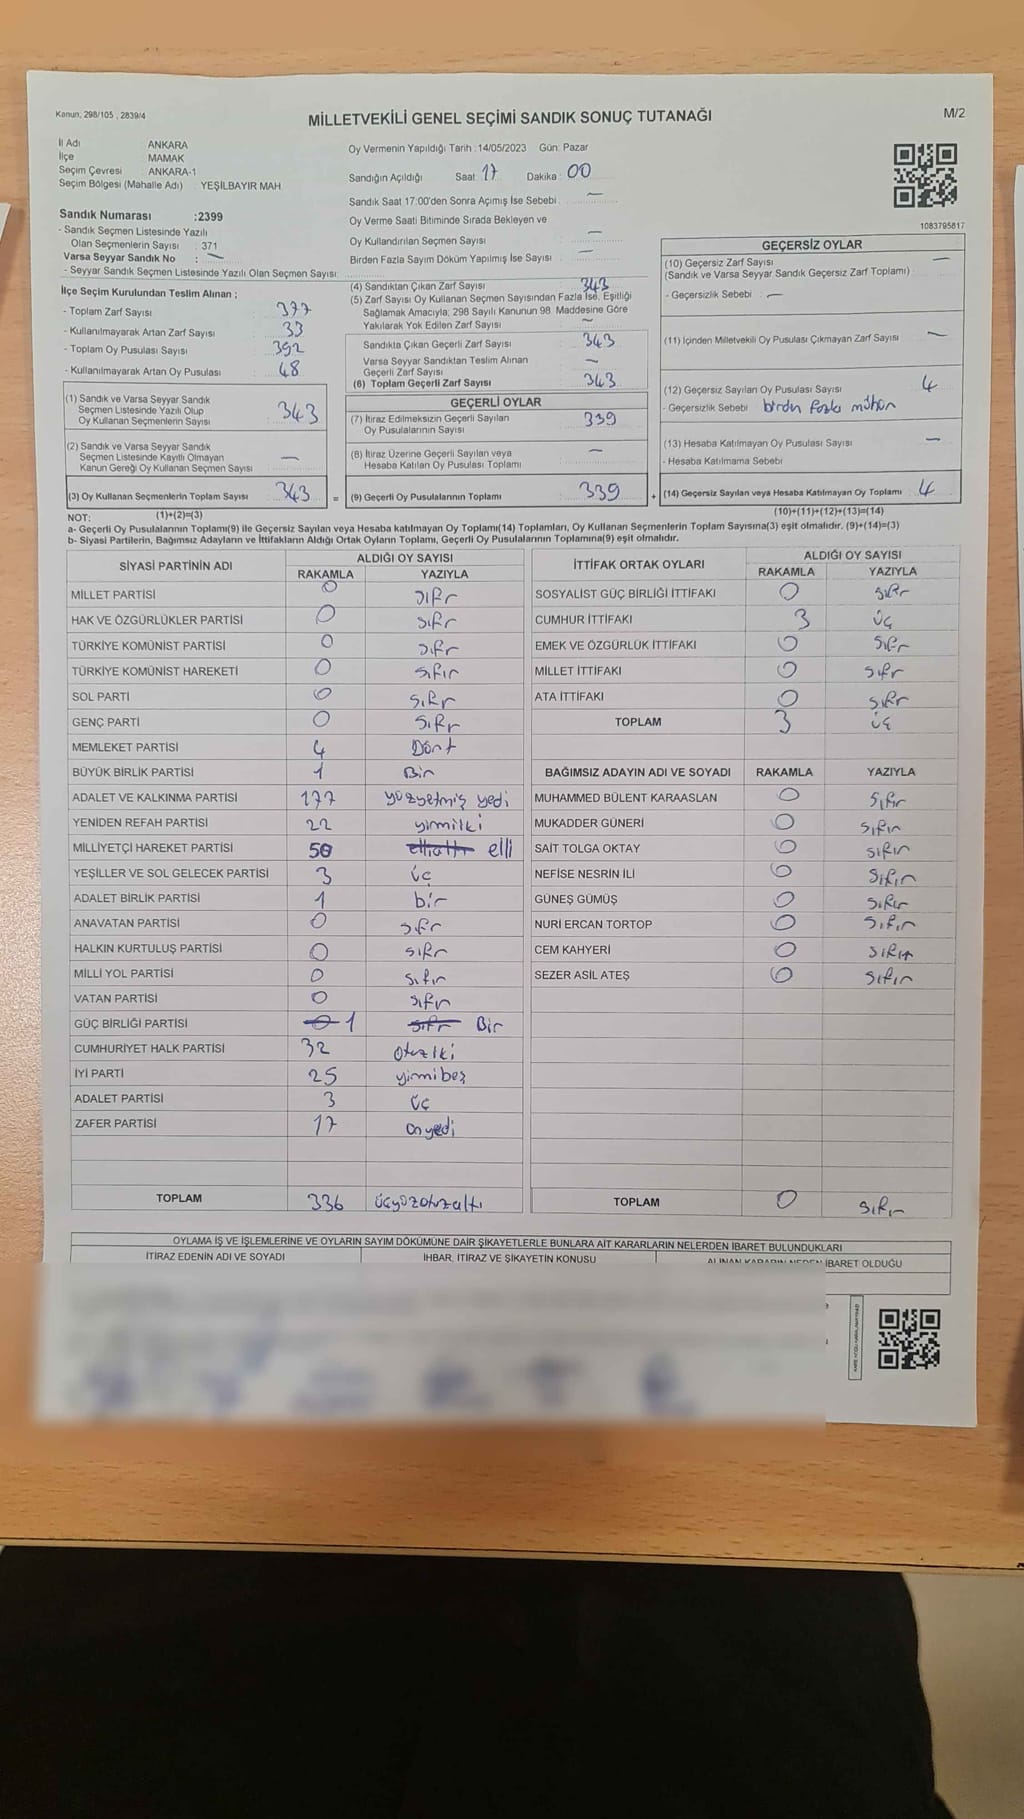 Kanun, 298/105 , 2839/4
MİLLETVEKİLİ GENEL SEÇİMİ SANDIK SONUÇ TUTANAĞI
M/2
İl Adı ANKARA
İlçe MAMAK
Seçim Çevresi ANKARA-1
Seçim Bölgesi (Mahalle Adı) YEŞİLBAYIR MAH
Sandık Numarası :2399
- Sandık Seçmen Listesinde Yazılı
Olan Seçmenlerin Sayısı : 371
Varsa Seyyar Sandık No : —
- Seyyar Sandık Seçmen Listesinde Yazılı Olan Seçmen Sayısı:
Oy Vermenin Yapıldığı Tarih :14/05/2023 Gün: Pazar
Sandığın Açıldığı Saat: 17 Dakika: 00
Sandık Saat 17:00'den Sonra Açımış İse Sebebi: —
Oy Verme Saati Bitiminde Sırada Bekleyen ve
Oy Kullandırılan Seçmen Sayısı —
Birden Fazla Sayım Döküm Yapılmış İse Sayısı —
1083795817
İlçe Seçim Kurulundan Teslim Alınan ;
- Toplam Zarf Sayısı 377
- Kullanılmayarak Artan Zarf Sayısı 33
- Toplam Oy Pusulası Sayısı 392
- Kullanılmayarak Artan Oy Pusulası 48
(1) Sandık ve Varsa Seyyar Sandık
Seçmen Listesinde Yazılı Olup
Oy Kullanan Seçmenlerin Sayısı 343
(2) Sandık ve Varsa Seyyar Sandık
Seçmen Listesinde Kayıtlı Olmayan
Kanun Gereği Oy Kullanan Seçmen Sayısı —
(3) Oy Kullanan Seçmenlerin Toplam Sayısı 343 =
(1)+(2)=(3)
(4) Sandıktan Çıkan Zarf Sayısı 343
(5) Zarf Sayısı Oy Kullanan Seçmen Sayısından Fazla İse, Eşitliği
Sağlamak Amacıyla, 298 Sayılı Kanunun 98. Maddesine Göre
Yakılarak Yok Edilen Zarf Sayısı —
Sandıkta Çıkan Geçerli Zarf Sayısı 343
Varsa Seyyar Sandıktan Teslim Alınan
Geçerli Zarf Sayısı —
(6) Toplam Geçerli Zarf Sayısı 343
GEÇERLİ OYLAR
(7) İtiraz Edilmeksizin Geçerli Sayılan
Oy Pusulalarının Sayısı 339
(8) İtiraz Üzerine Geçerli Sayılan veya
Hesaba Katılan Oy Pusulası Toplamı —
(9) Geçerli Oy Pusulalarının Toplamı 339 +
GEÇERSİZ OYLAR
(10) Geçersiz Zarf Sayısı —
(Sandık ve Varsa Seyyar Sandık Geçersiz Zarf Toplamı)
- Geçersizlik Sebebi : —
(11) İçinden Milletvekili Oy Pusulası Çıkmayan Zarf Sayısı —
(12) Geçersiz Sayılan Oy Pusulası Sayısı 4
- Geçersizlik Sebebi birden fazla mühür
(13) Hesaba Katılmayan Oy Pusulası Sayısı —
- Hesaba Katılmama Sebebi
(14) Geçersiz Sayılan veya Hesaba Katılmayan Oy Toplamı 4
(10)+(11)+(12)+(13)=(14)
NOT:
a- Geçerli Oy Pusulalarının Toplamı(9) ile Geçersiz Sayılan veya Hesaba katılmayan Oy Toplamı(14) Toplamları, Oy Kullanan Seçmenlerin Toplam Sayısına(3) eşit olmalıdır. (9)+(14)=(3)
b- Siyasi Partilerin, Bağımsız Adayların ve İttifakların Aldığı Ortak Oyların Toplamı, Geçerli Oy Pusulalarının Toplamına(9) eşit olmalıdır.
SİYASİ PARTİNİN ADI ALDIĞI OY SAYISI
RAKAMLA YAZIYLA
MİLLET PARTİSİ 0 sıfır
HAK VE ÖZGÜRLÜKLER PARTİSİ 0 sıfır
TÜRKİYE KOMÜNİST PARTİSİ 0 sıfır
TÜRKİYE KOMÜNİST HAREKETİ 0 sıfır
SOL PARTİ 0 sıfır
GENÇ PARTİ 0 sıfır
MEMLEKET PARTİSİ 4 Dört
BÜYÜK BİRLİK PARTİSİ 1 Bir
ADALET VE KALKINMA PARTİSİ 177 yüzyetmiş yedi
YENİDEN REFAH PARTİSİ 22 yirmiiki
MİLLİYETÇİ HAREKET PARTİSİ 50 elli
YEŞİLLER VE SOL GELECEK PARTİSİ 3 üç
ADALET BİRLİK PARTİSİ 1 bir
ANAVATAN PARTİSİ 0 sıfır
HALKIN KURTULUŞ PARTİSİ 0 sıfır
MİLLİ YOL PARTİSİ 0 sıfır
VATAN PARTİSİ 0 sıfır
GÜÇ BİRLİĞİ PARTİSİ 0 1 sıfır Bir
CUMHURİYET HALK PARTİSİ 32 otuziki
İYİ PARTİ 25 yirmibeş
ADALET PARTİSİ 3 üç
ZAFER PARTİSİ 17 onyedi
TOPLAM 336 üçyüzotuzaltı
İTTİFAK ORTAK OYLARI ALDIĞI OY SAYISI
RAKAMLA YAZIYLA
SOSYALİST GÜÇ BİRLİĞİ İTTİFAKI 0 sıfır
CUMHUR İTTİFAKI 3 üç
EMEK VE ÖZGÜRLÜK İTTİFAKI 0 sıfır
MİLLET İTTİFAKI 0 sıfır
ATA İTTİFAKI 0 sıfır
TOPLAM 3 üç
BAĞIMSIZ ADAYIN ADI VE SOYADI RAKAMLA YAZIYLA
MUHAMMED BÜLENT KARAASLAN 0 sıfır
MUKADDER GÜNERİ 0 sıfır
SAİT TOLGA OKTAY 0 sıfır
NEFİSE NESRİN İLİ 0 sıfır
GÜNEŞ GÜMÜŞ 0 sıfır
NURİ ERCAN TORTOP 0 sıfır
CEM KAHYERİ 0 sıfır
SEZER ASİL ATEŞ 0 sıfır
TOPLAM 0 sıfır
OYLAMA İŞ VE İŞLEMLERİNE VE OYLARIN SAYIM DÖKÜMÜNE DAİR ŞİKAYETLERLE BUNLARA AİT KARARLARIN NELERDEN İBARET BULUNDUKLARI
İTİRAZ EDENİN ADI VE SOYADI İHBAR, İTİRAZ VE ŞİKAYETİN KONUSU ALINAN KARARIN NEDEN İBARET OLDUĞU